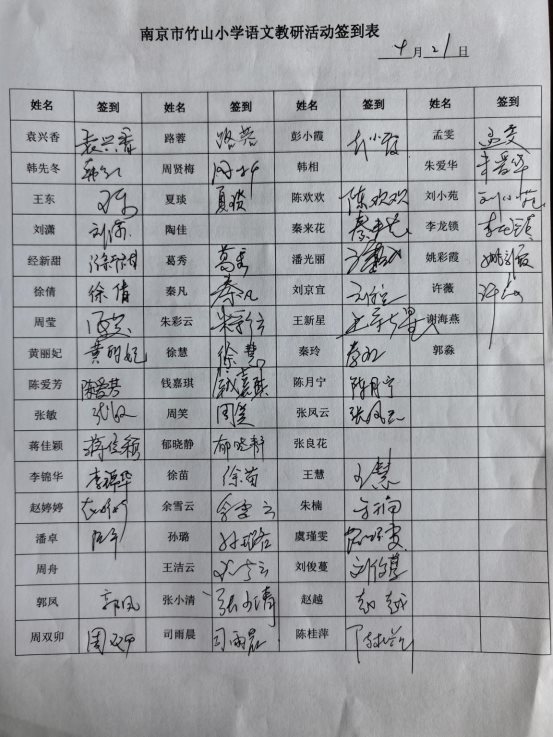 南京市竹山小学语文教研活动签到表
4月21日
姓名 签到 姓名 签到 姓名 签到 姓名 签到
袁兴香 袁兴香 路蓉 路蓉 彭小霞 孟雯 孟雯
韩先冬 周贤梅 韩相 朱爱华 朱爱华
王东 王东 夏琰 夏琰 陈欢欢 陈欢欢 刘小苑 刘小苑
刘潇 刘潇 陶佳 秦来花 秦来花 李龙锁 李龙锁
经新甜 经新甜 葛秀 葛秀 潘光丽 姚彩霞 姚彩霞
徐倩 徐倩 秦凡 秦凡 刘京宜 刘京宜 许薇 许薇
周莹 周莹 朱彩云 朱彩云 王新星 王新星 谢海燕
黄丽妃 黄丽妃 徐慧 徐慧 秦玲 秦玲 郭淼
陈爱芳 陈爱芳 钱嘉琪 钱嘉琪 陈月宁 陈月宁
张敏 张敏 周笑 周笑 张凤云 张凤云
蒋佳颖 蒋佳颖 郁晓静 郁晓静 张良花
李锦华 李锦华 徐苗 徐苗 王慧 王慧
赵婷婷 赵婷婷 余雪云 余雪云 朱楠 朱楠
潘卓 孙璐 孙璐 虞瑾雯 虞瑾雯
周舟 王洁云 王洁云 刘俊蔓 刘俊蔓
郭凤 郭凤 张小清 张小清 赵越 赵越
周双卯 周双卯 司雨晨 司雨晨 陈桂萍 陈桂萍